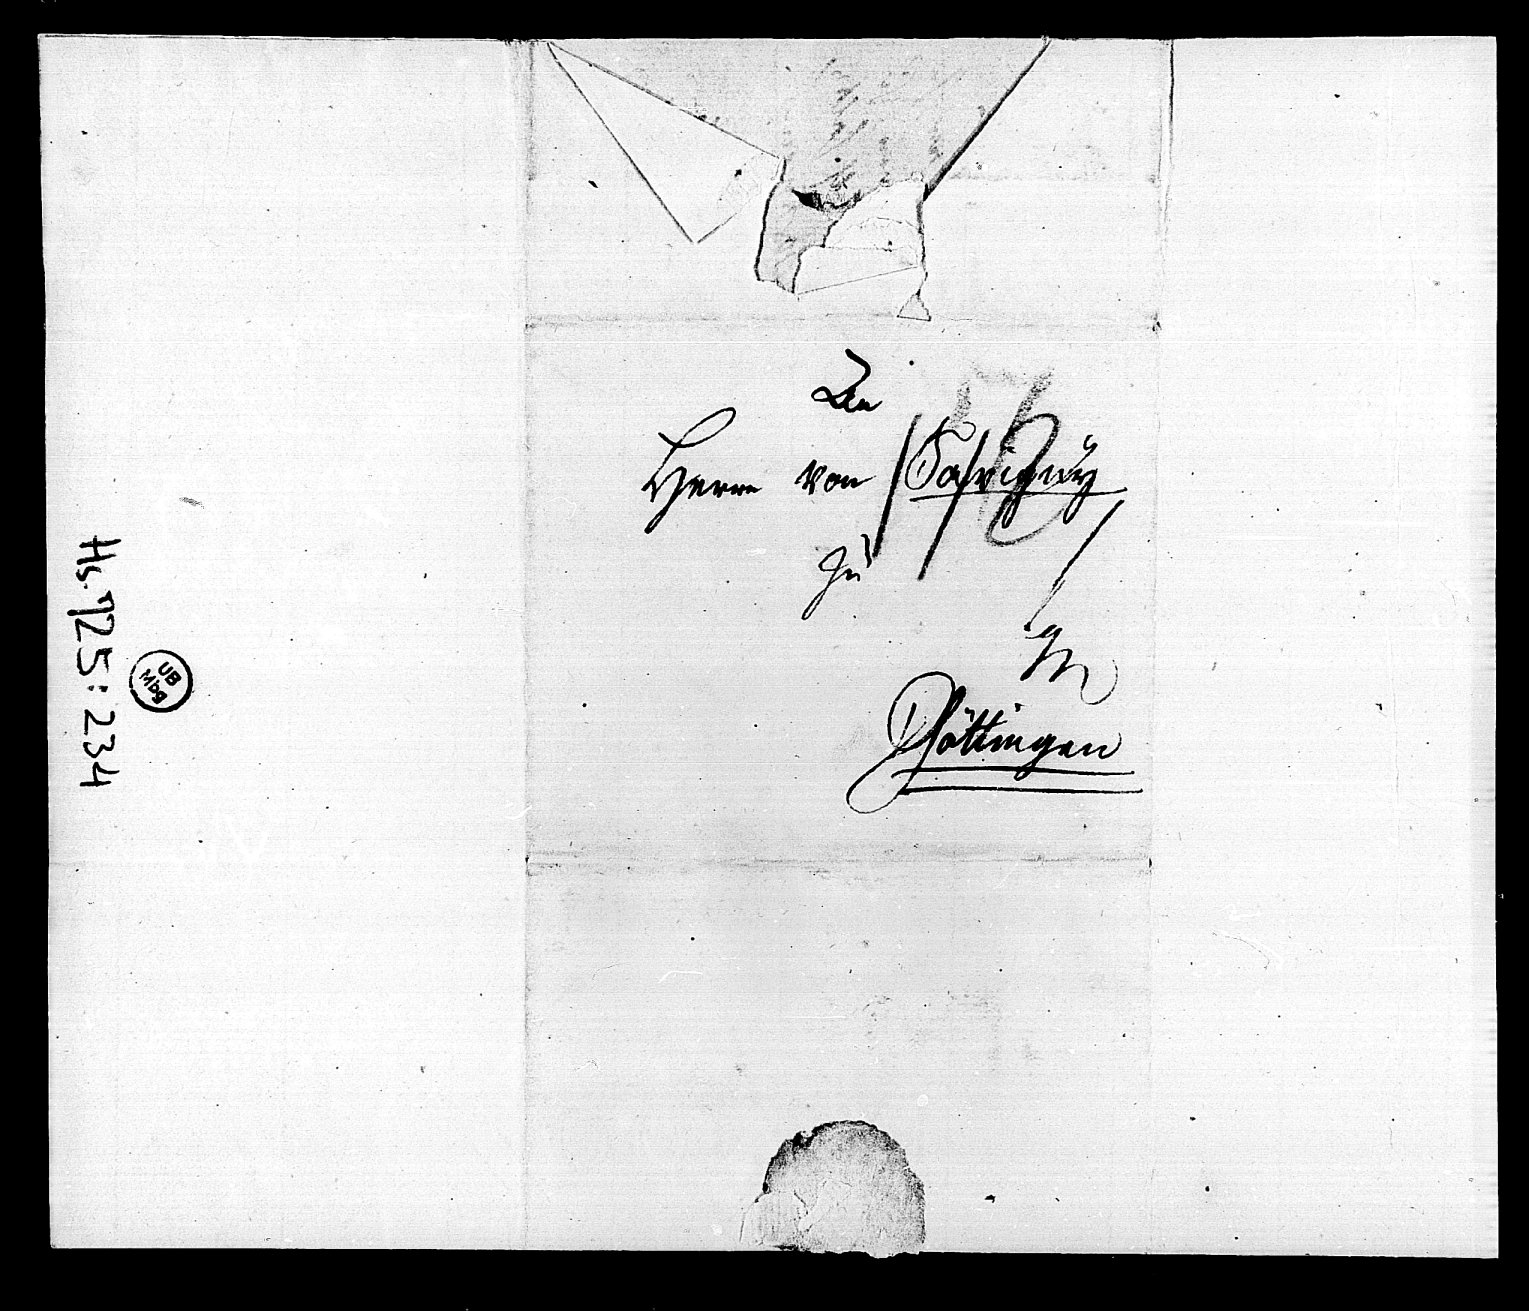 An
Herrn von Savigny
zu
in
Göttingen
Hs. 725: 234
UB
Mbg